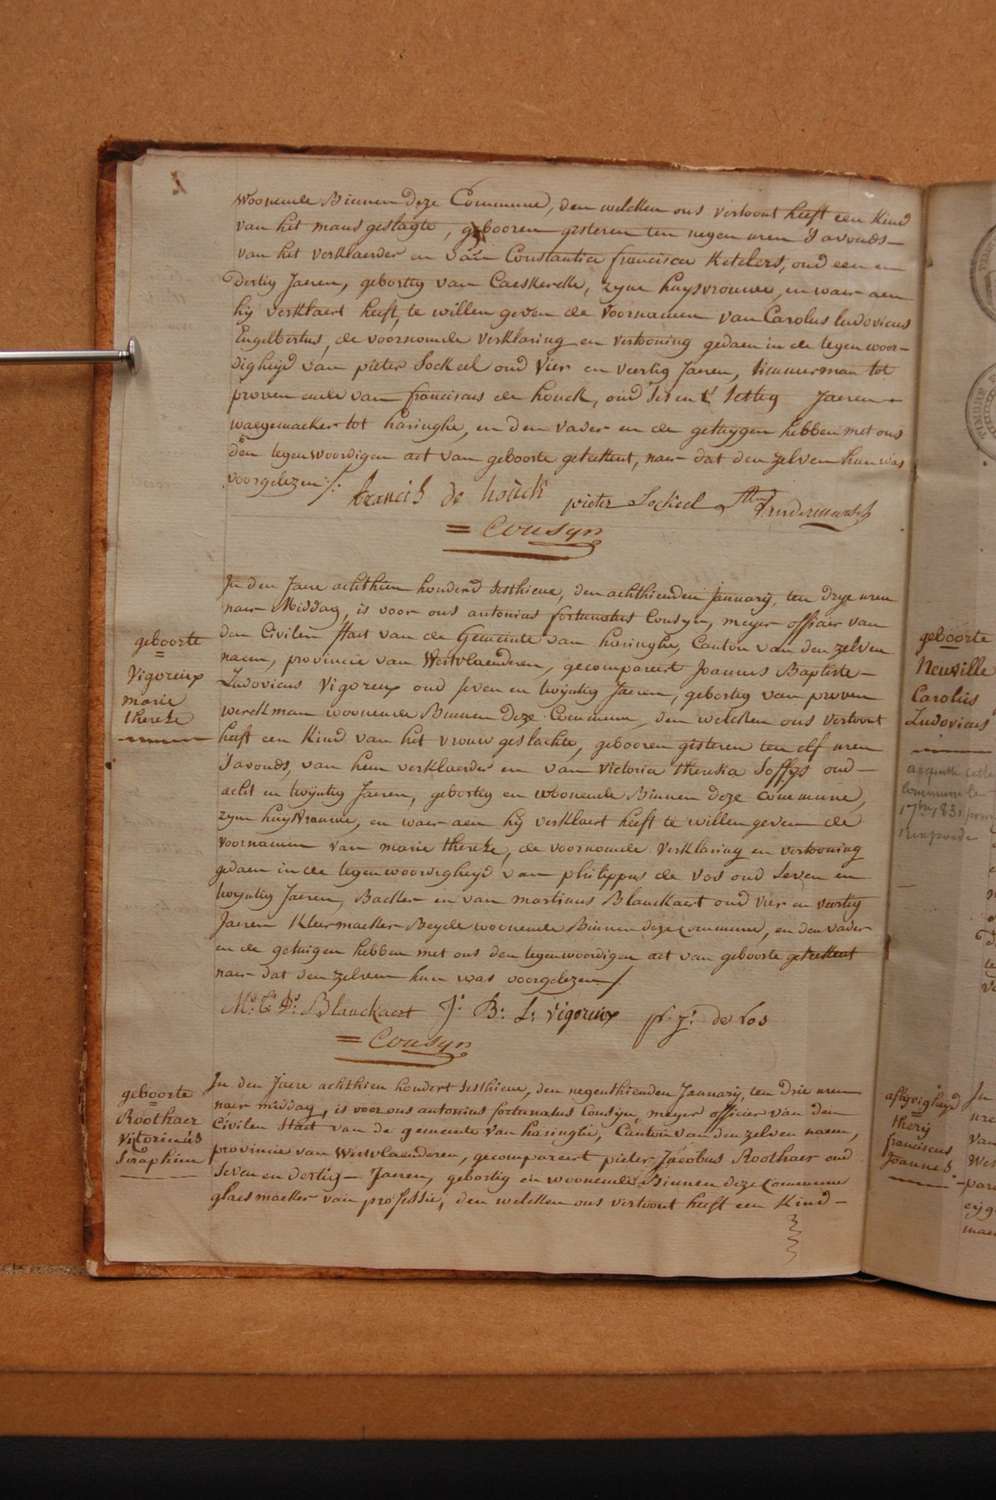 woonende Binnen deze Commune, den welcken ons vertoont heeft een kind
van het mans geslagte, gebooren gisteren ten negen uren s'avonds
van het verklaerder en van Constantia francisca Ketelers, oud een en
Dertig Jaeren, geboortig van Caeskerke, zyne huysvrouwe, en waer aen
hy verklaert heeft, te willen geven de voornamen van Carolus Ludovicus
Engelbertus, de voornoemde verklaring en vertooning gedaen in de tegenwoor-
digheyd van pieter Sockeel oud vier en veertig Jaeren, timmerman tot
proven ende van franciscus de houck, oud ses en t'settig Jaeren
wagemaeker tot haringhe, en den vader en de getuygen hebben met ons
den tegenwoordigen act van geboorte geteekent, naer dat den zelven hun was
voorgelezen ./.
francis de houck pieter Sockeel
= Cousyn
geboorte
=
Vigoreux
marie
thereze
In den Jaere achthien honderd sesthiene, den achthienden January, ten drye uren
naer Middag, is voor ons antonius fortunatus Cousyn, meyer officier van
den Civilen staet van de Gemeente van haringhe, Canton van den zelven
naem, provincie van Westvlaenderen, gecompareert Joannes Baptiste
Ludovicus Vigoreux oud seven en twyntig Jaeren, gebortig van proven
werckman woonende Binnen deze Commune, den welcken ons vertoont
heeft een Kind van het vrouw geslachte, gebooren gisteren ten elf uren
s'avonds, van hem verklaerder en van victoria theresia Soffys oud
acht en twyntig Jaeren, gebortig en woonende Binnen deze commune,
zyne huysvrauwe, en waer aen hy verklaert heeft te willen geven de
voornamen van marie thereze, de voornoemde verklaring en vertooning
gedaen in de tegenwoordigheyd van philippus de vos oud seven en
twyntig Jaeren, Backer en van martinus Blanckaert oud vier en veertig
Jaeren Kleermaeker Beyde woonende Binnen deze commune, en den vader
en de getuigen hebben met ons den tegenwoordigen act van geboorte geteekent
naer dat den zelven hun was voorgelezen /
Blanckaert J: B: L: Vigoreux de vos
= Cousyn
geboorte
=
Roothaer
Victorinus
Seraphin
In den Jaere achthien hondert sesthiene, den negenthienden January, ten drie uren
naer middag, is voor ons antonius fortunatus Cousyn, meyer officier van den
Civilen staet van de gemeente van haringhe, Canton van den zelven naem,
provincie van Westvlaenderen, gecompareert pieter Jacobus Roothaer oud
seven en dertig Jaeren, gebortig en woonende Binnen deze Commune
glaesmaeker van professie, den welcken ons vertoont heeft een Kind
geboorte
=
Neuville
Carolus
Ludovicus
aflyvigheyd
=
thery
franciscus
Joannes